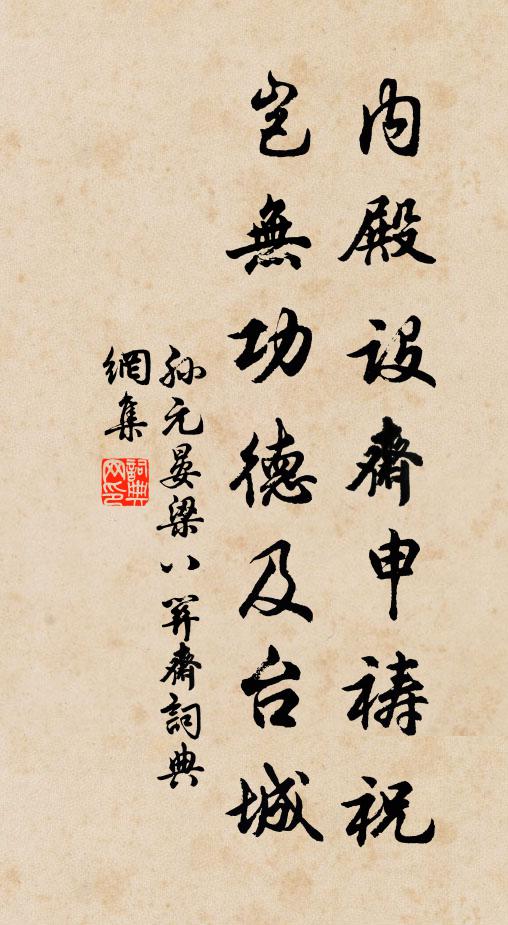 內殿設齋申禱祝
豈無功德及台城
孫元晏梁八關齋詞典
網集
詞典
网印